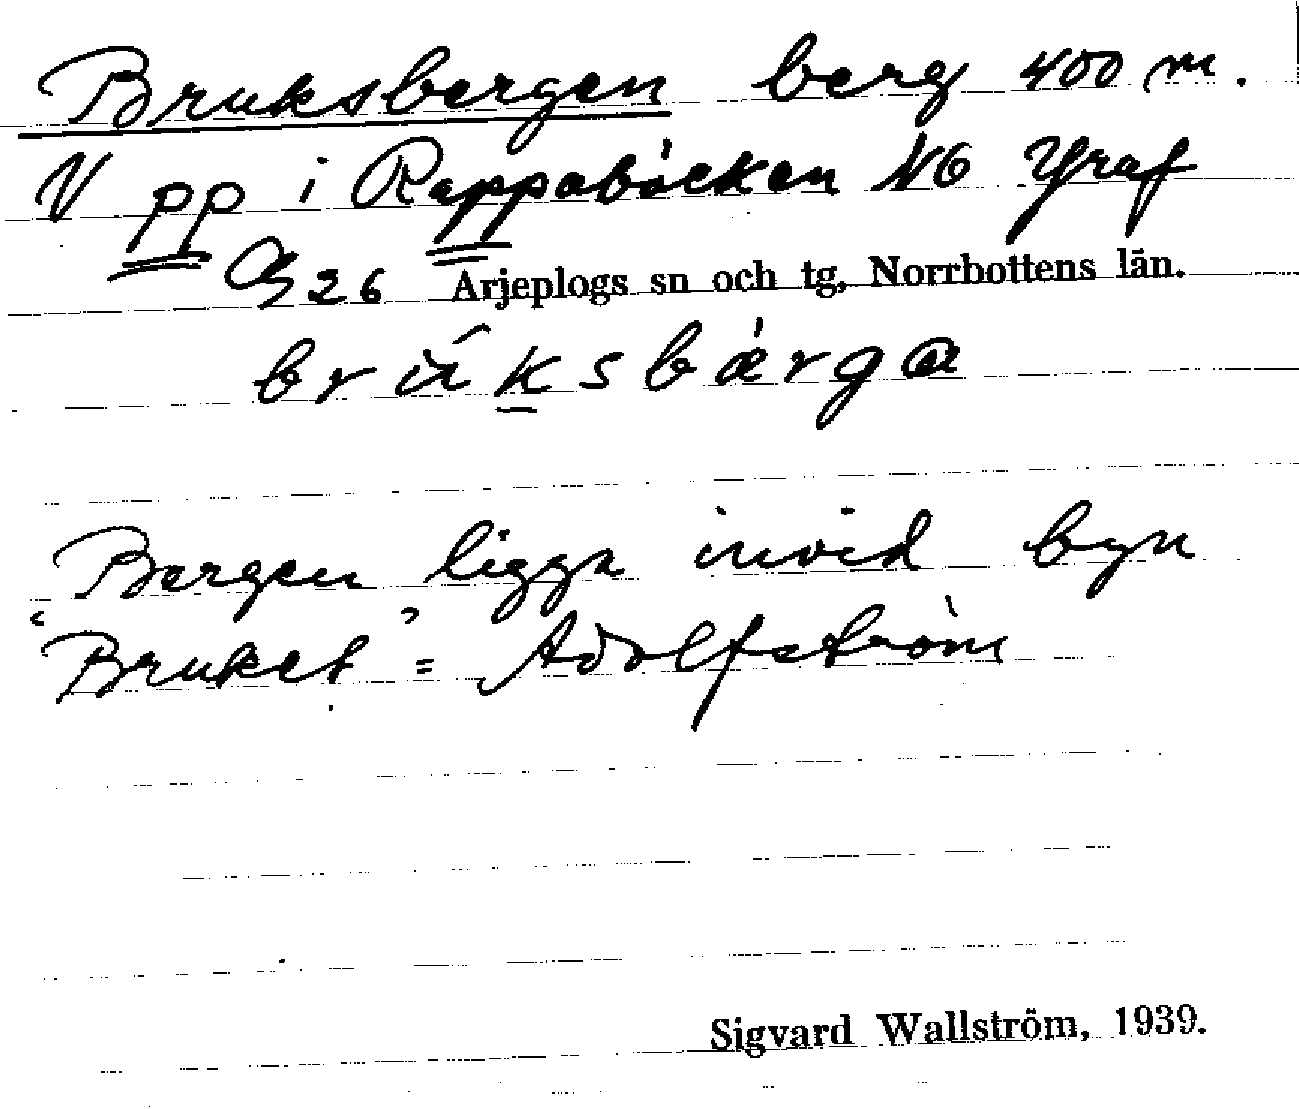 Bruksbergen berg 400 m.
V pp i Rappabäcken N6 Graf
26 Arjeplogs sn och tg, Norrbottens län.
brúksbärga
Bergen ligga invid byn
"Bruket" = Adolfström
Sigvard Wallström, 1939.